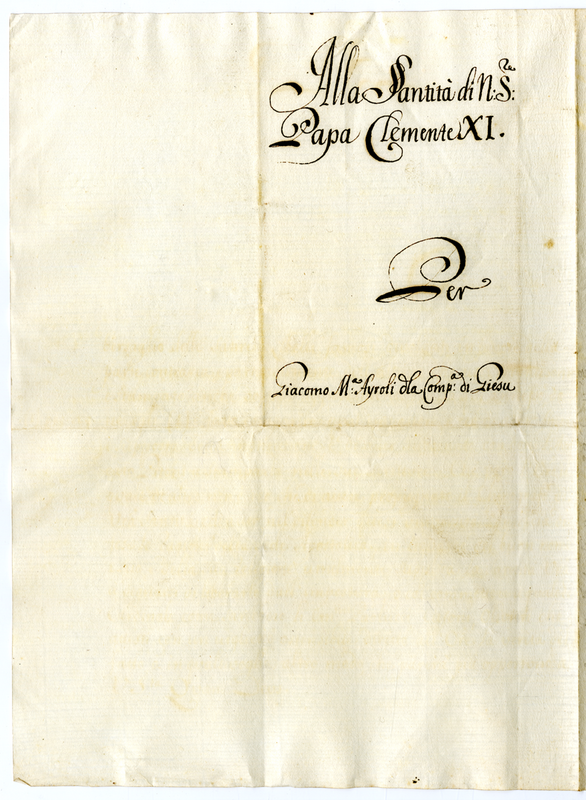 Alla Santità di N: S:re
Papa Clemente XI.
Per
Giacomo M:a Ayroli dla Comp:a di Giesu